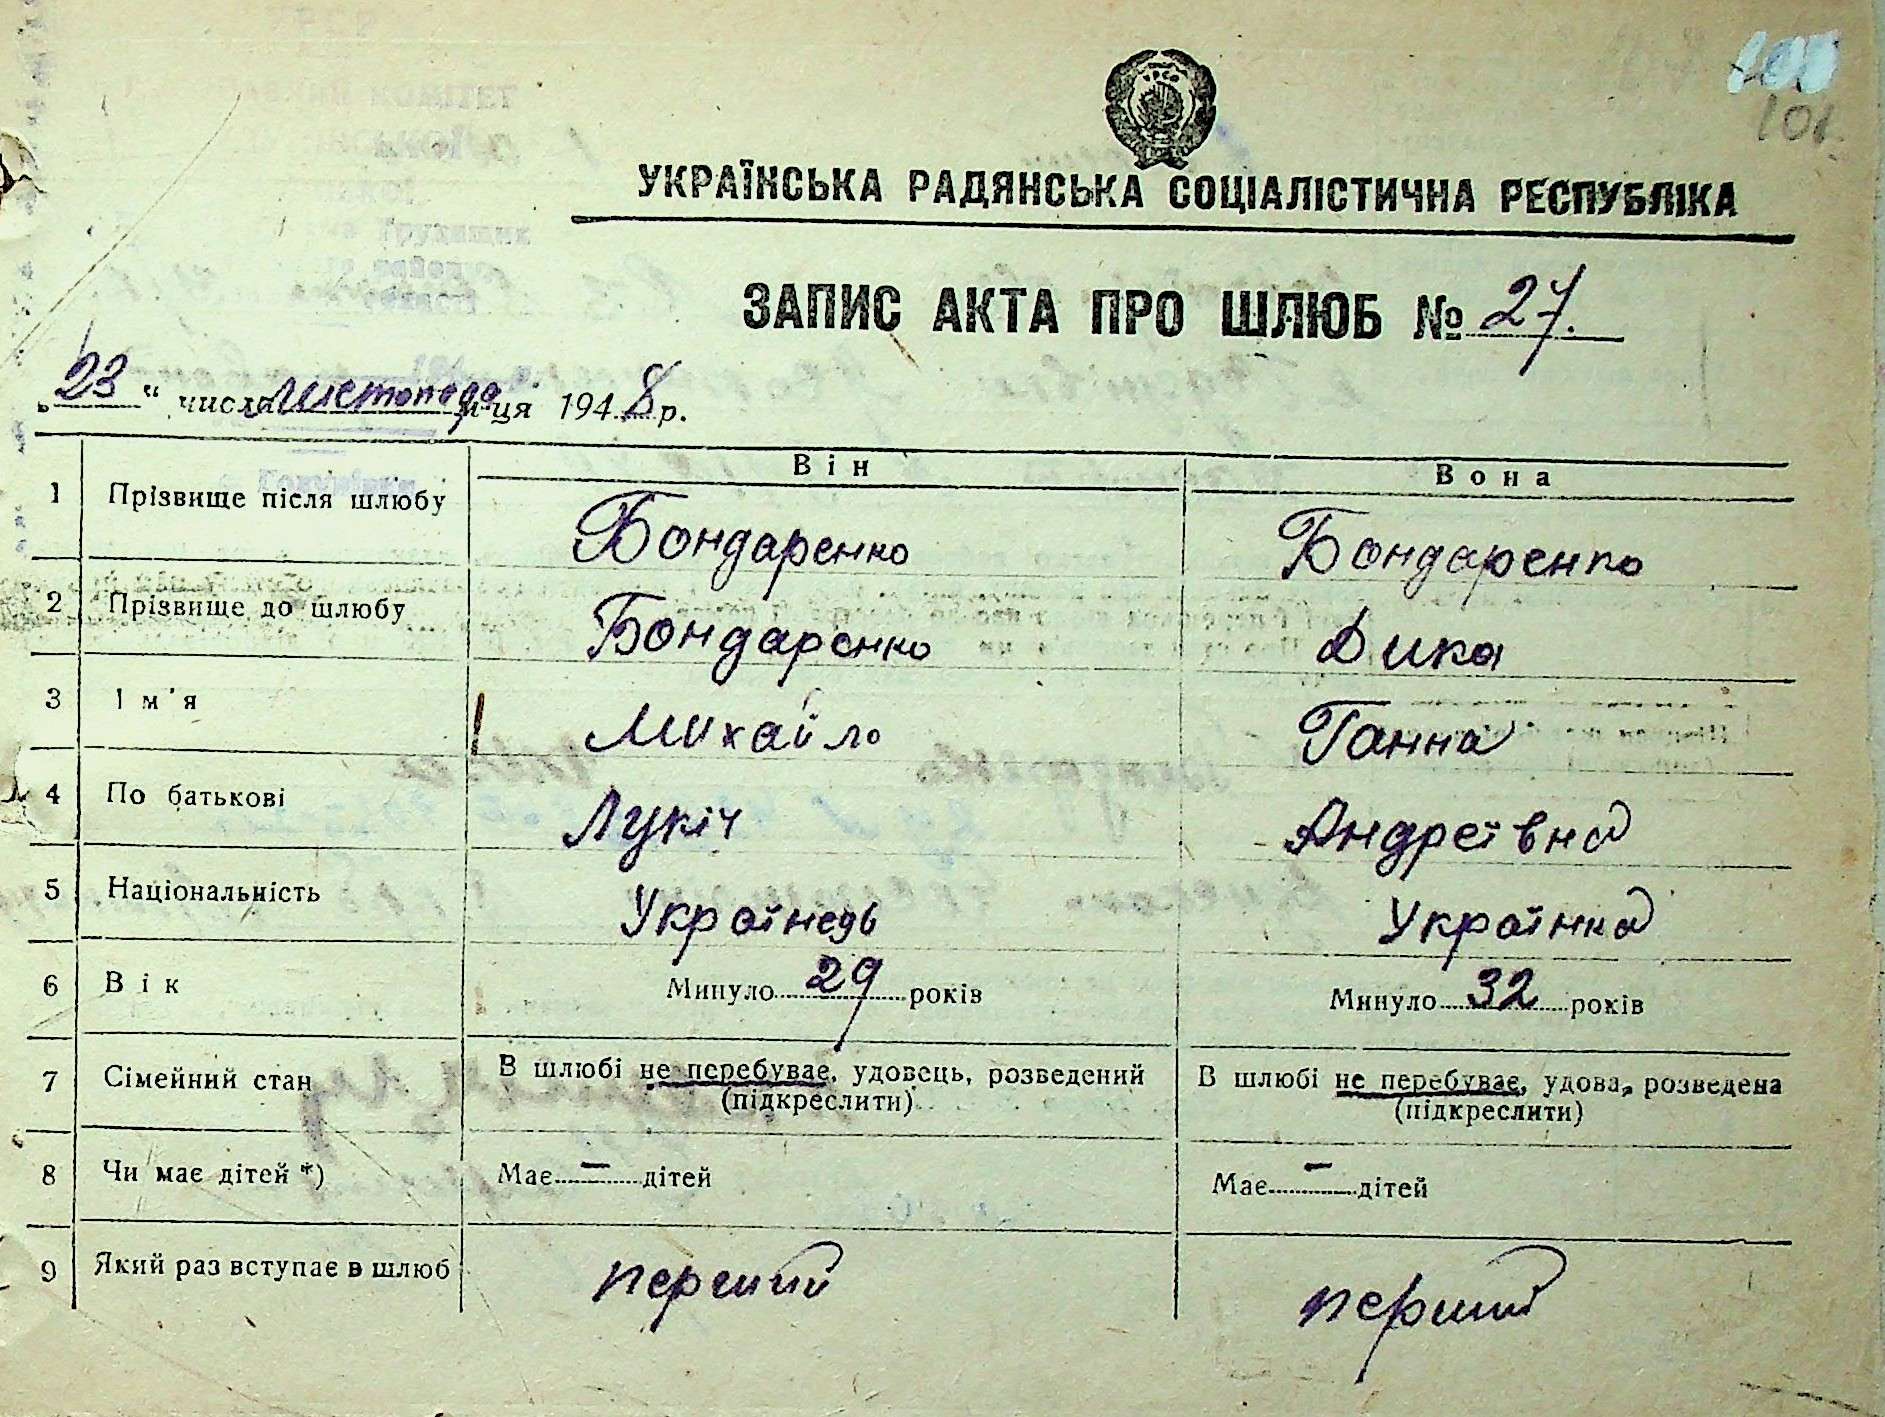 УРСР
101
УКРАЇНСЬКА РАДЯНСЬКА СОЦІАЛІСТИЧНА РЕСПУБЛІКА
ЗАПИС АКТА ПРО ШЛЮБ № 27.
„23“ числа листопада м-ця 1948 р.
Він Вона
1 Прізвище після шлюбу Бондаренко Бондаренко
2 Прізвище до шлюбу Бондаренко Дика
3 Ім'я Михайло Ганна
4 По батькові Лукіч Андреївна
5 Національність Українець Українка
6 Вік Минуло 29 років Минуло 32 років
7 Сімейний стан В шлюбі не перебуває, удовець, розведений В шлюбі не перебуває, удова, розведена
(підкреслити) (підкреслити)
8 Чи має дітей *) Має — дітей Має — дітей
9 Який раз вступає в шлюб перший перший